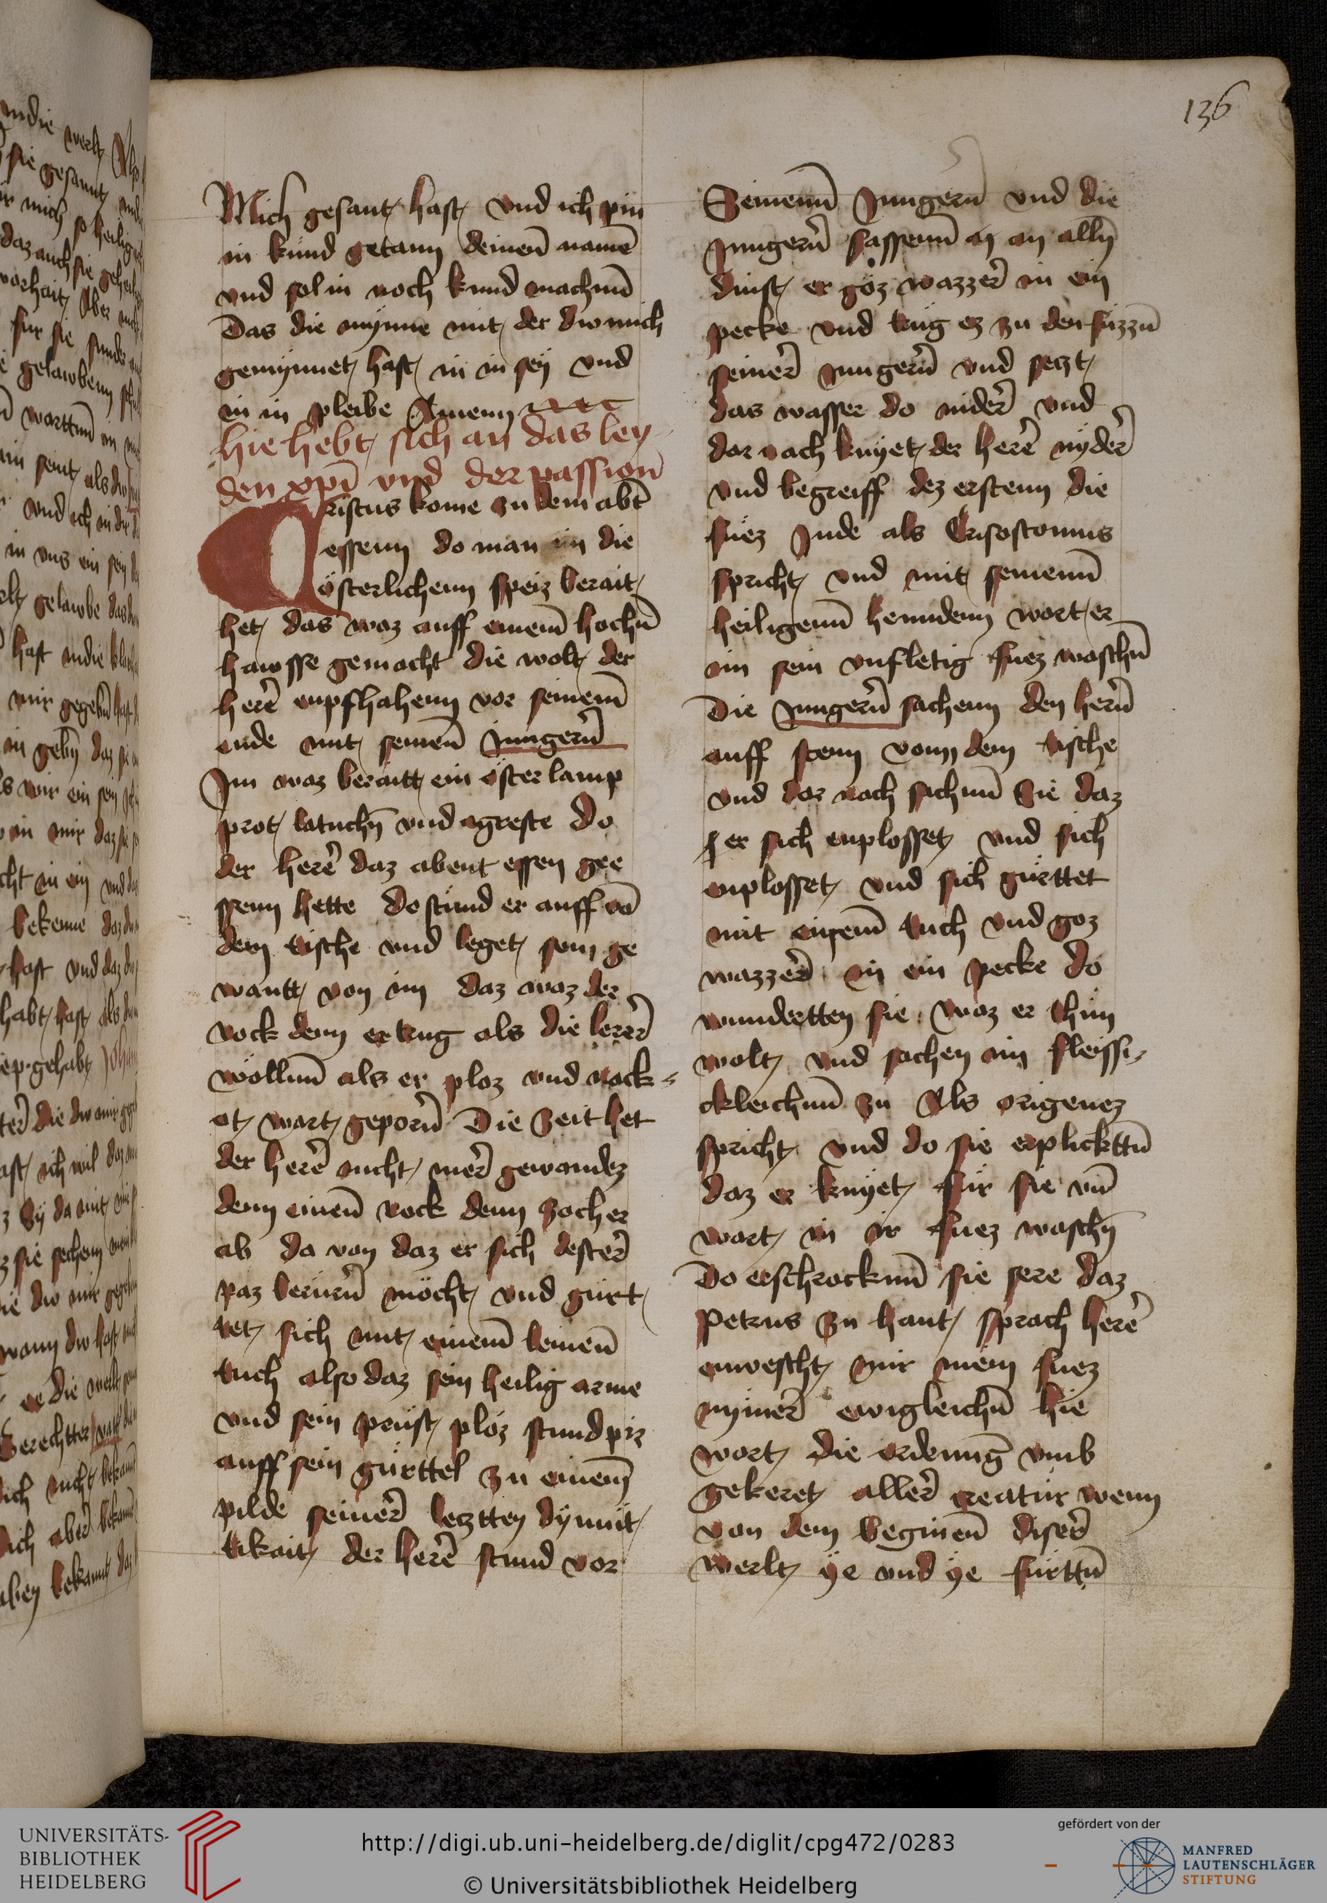 136
Mich gesant hast vnd ich pin
in kund getann deinen̄ namē
vnd sol in noch kund machnn̄
Das die mynne mit der dw mich
gemynnet hast in in sey vnd
in in pleibe Amenn
hie hebt sich an das ley
den xpī vnd der passion̄
Cristus kome zu dem abt̄
essenn do man im die
österlichenn speiz berait
het das waz auff einem̄ hochn̄
hawsse gemacht die wolt der
herē enpfhahenn vor seinem̄
ende mit seinen̄ Jungern̄
Im waz beraitt ein öster lamp
prot latuchn̄ vnd agreste Do
der herē daz abent essen gee
ssenn hette do stund er auff vō
dem tische vnd leget sein ge
wantt von im daz waz der
rock denn er trug als die lerer̄
wöllnn̄ als er ploz vnd nack-
et wart geporn̄ Die zeit het
der herē nicht mer̄ gewandez
denn einen̄ rock denn zoch er
ab da von daz er sich dester̄
paz berurn̄ möcht vnd gurt
tet sich mit einem̄ leinen̄
tuch also daz sein heilig arme
vnd sein prust ploz stund piz
auff sein gurttel zu einem̄
pilde seiner̄ lecztten dymut
tikait der herē stund vor
Seinenn̄ Jungern̄ vnd die
Jungern̄ sassenn̄ an alln̄
dinst er göz wazzer̄ in ein
pecke vnd trug ez zu den fuzzn̄
seiner̄ Jungern̄ vnd seczt
das wasser do nider̄ vnd
dar nach knyet der herē nyder̄
vnd begreiff dez erstenn die
fuez Jude als Crisostomus
spricht vnd mit seinenn̄
heiligenn̄ henndenn wart er
im sein vnfletig fuez waschn̄
Die Jungern̄ sachenn den hern̄
auff stenn vonn dem tische
vnd dar nach sichnn̄ Sie daz
er sich enplosset vnd sich
enplosset vnd sich gurttet
mit einem̄ tuch vnd goz
wazzer̄ in ein pecke do
wundertten sie waz er thun
wolt vnd sachen im fleissi-
ckleichnn̄ zu Als origenez
spricht vnd do sie erplickttn̄
daz er knyet fur sie vn̄
wart in ir fuez waschn̄
Do erschracknn̄ sie sere daz
Petrus zu hant sprach herē
enwescht mir mein fuez
nymer̄ ewigleichn̄ hie
wart die ordenung vmb
gekeret aller̄ creatur wenn
von dem beginen̄ diser̄
werlt ye vnd ye furttn̄
UNIVERSITÄTS-
BIBLIOTHEK
HEIDELBERG
http://digi.ub.uni-heidelberg.de/diglit/cpg472/0283
© Universitätsbibliothek Heidelberg
gefördert von der
MANFRED
LAUTENSCHLÄGER
STIFTUNG